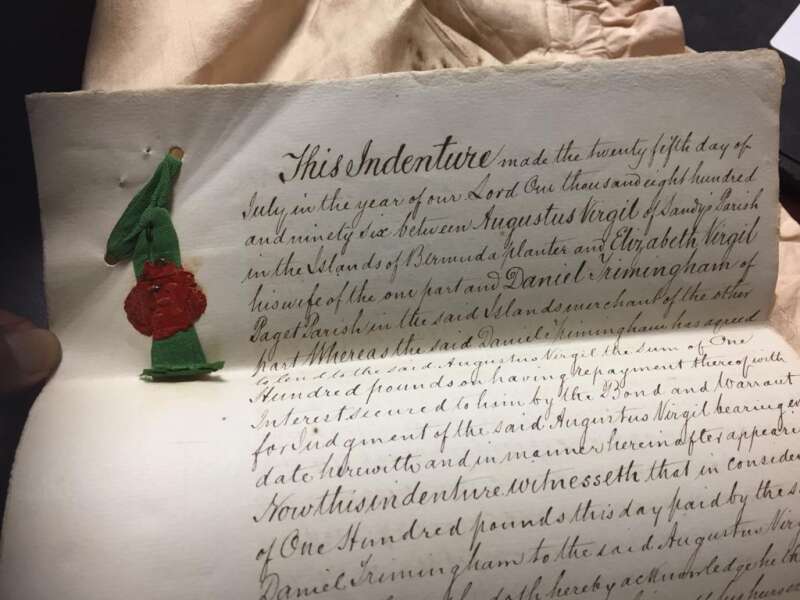 This Indenture made the twenty fifth day of
July in the year of our Lord One thousand eight hundred
and ninety six between Augustus Virgil of Sandys Parish
in the Islands of Bermuda planter and Elizabeth Virgil
his wife of the one part and Daniel Trimingham of
Paget Parish in the said Islands merchant of the other
part Whereas the said Daniel Trimingham has agreed
to lend to the said Augustus Virgil the sum of One
Hundred pounds on having repayment thereof with
Interest secured to him by the Bond and Warrant
for Judgment of the said Augustus Virgil bearing
date herewith and in manner hereinafter appeari
Now this indenture witnesseth that in consider
of One Hundred pounds this day paid by the s
Daniel Trimingham to the said Augustus Virg
doth hereby acknowledge he